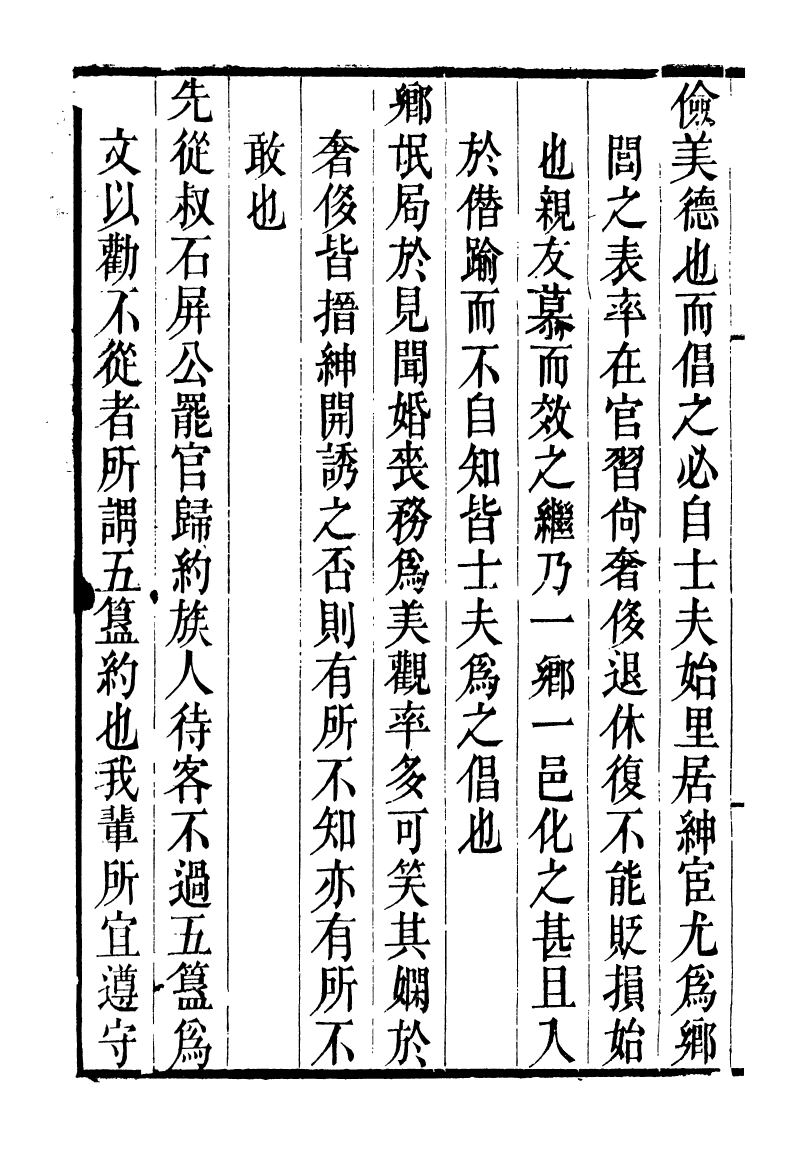 儉美德也而倡之必自士夫始里居紳宦尤爲鄉
閭之表率在官習尙奢侈退休復不能貶損始
也親友慕而效之繼乃一鄉一邑化之甚且入
於僭踰而不自知皆士夫爲之倡也
鄉氓局於見聞婚喪務爲美觀率多可笑其嫻於
奢侈皆搢紳開誘之否則有所不知亦有所不
敢也
先從叔石屏公罷官歸約族人待客不過五簋爲
文以勸不從者所謂五簋約也我輩所宜遵守